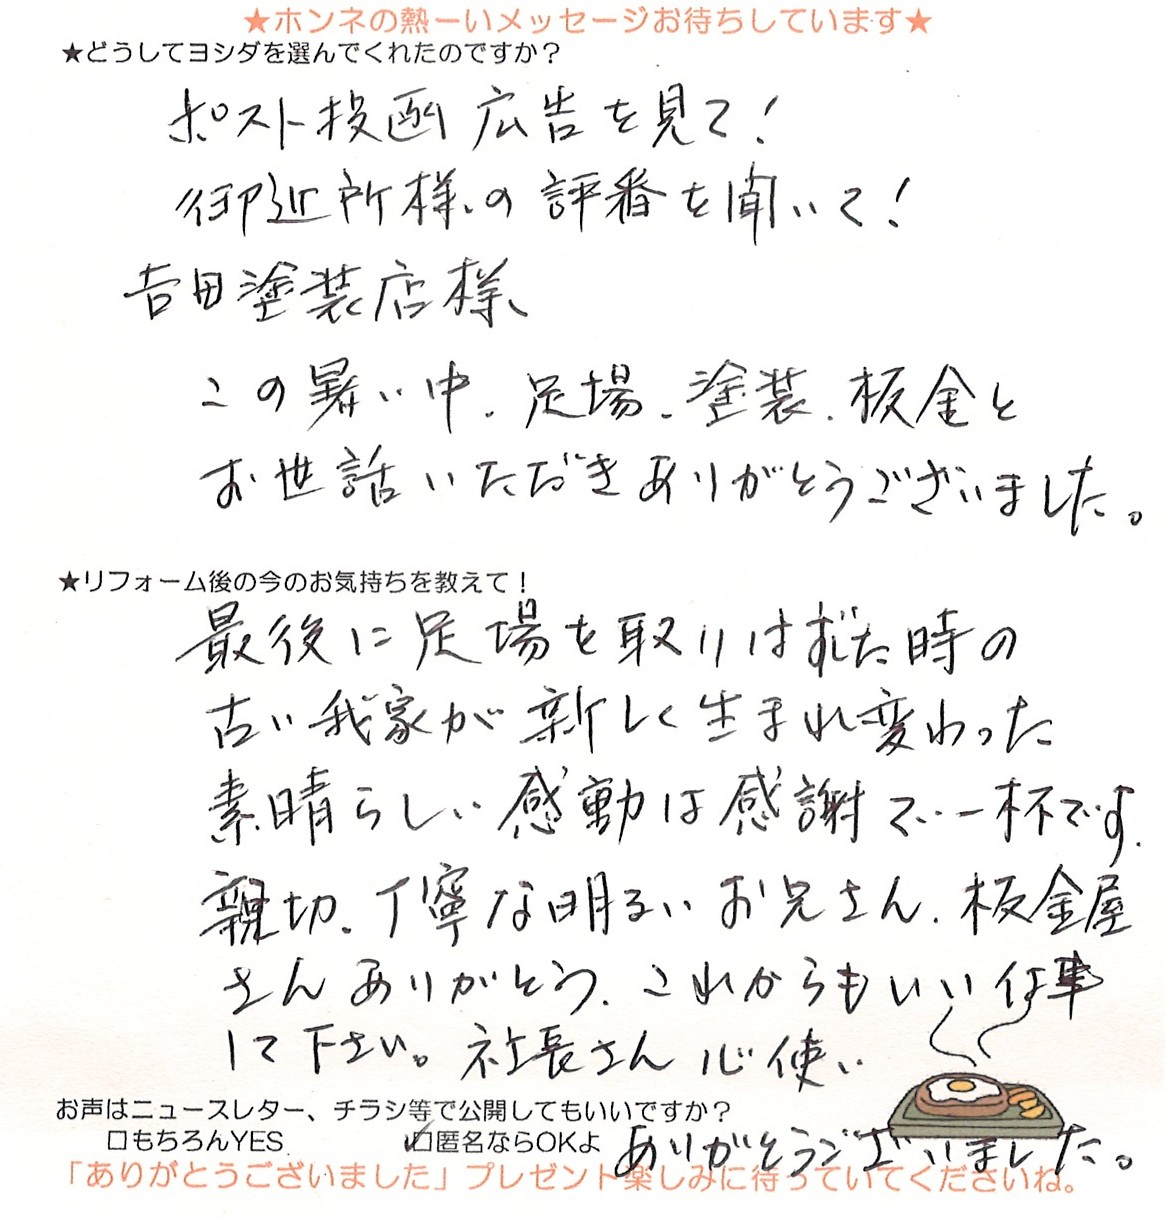 ★ホンネの熱ーいメッセージお待ちしています★
★どうしてヨシダを選んでくれたのですか？
ポスト投函広告を見て!
御近所様の評番を聞いて!
吉田塗装店様、
この暑い中、足場、塗装、板金と
お世話いただきありがとうございました。
★リフォーム後の今のお気持ちを教えて！
最後に足場を取りはずした時の
古い我家が新しく生まれ変わった
素晴らしい感動は感謝で一杯です。
親切、丁寧な明るいお兄さん、板金屋
さんありがとう、これからもいい仕事
して下さい。社長さん心使い
お声はニュースレター、チラシ等で公開してもいいですか？
□もちろんYES ☑匿名ならOKよ ありがとうございました。
「ありがとうございました」プレゼント楽しみに待っていてくださいね。